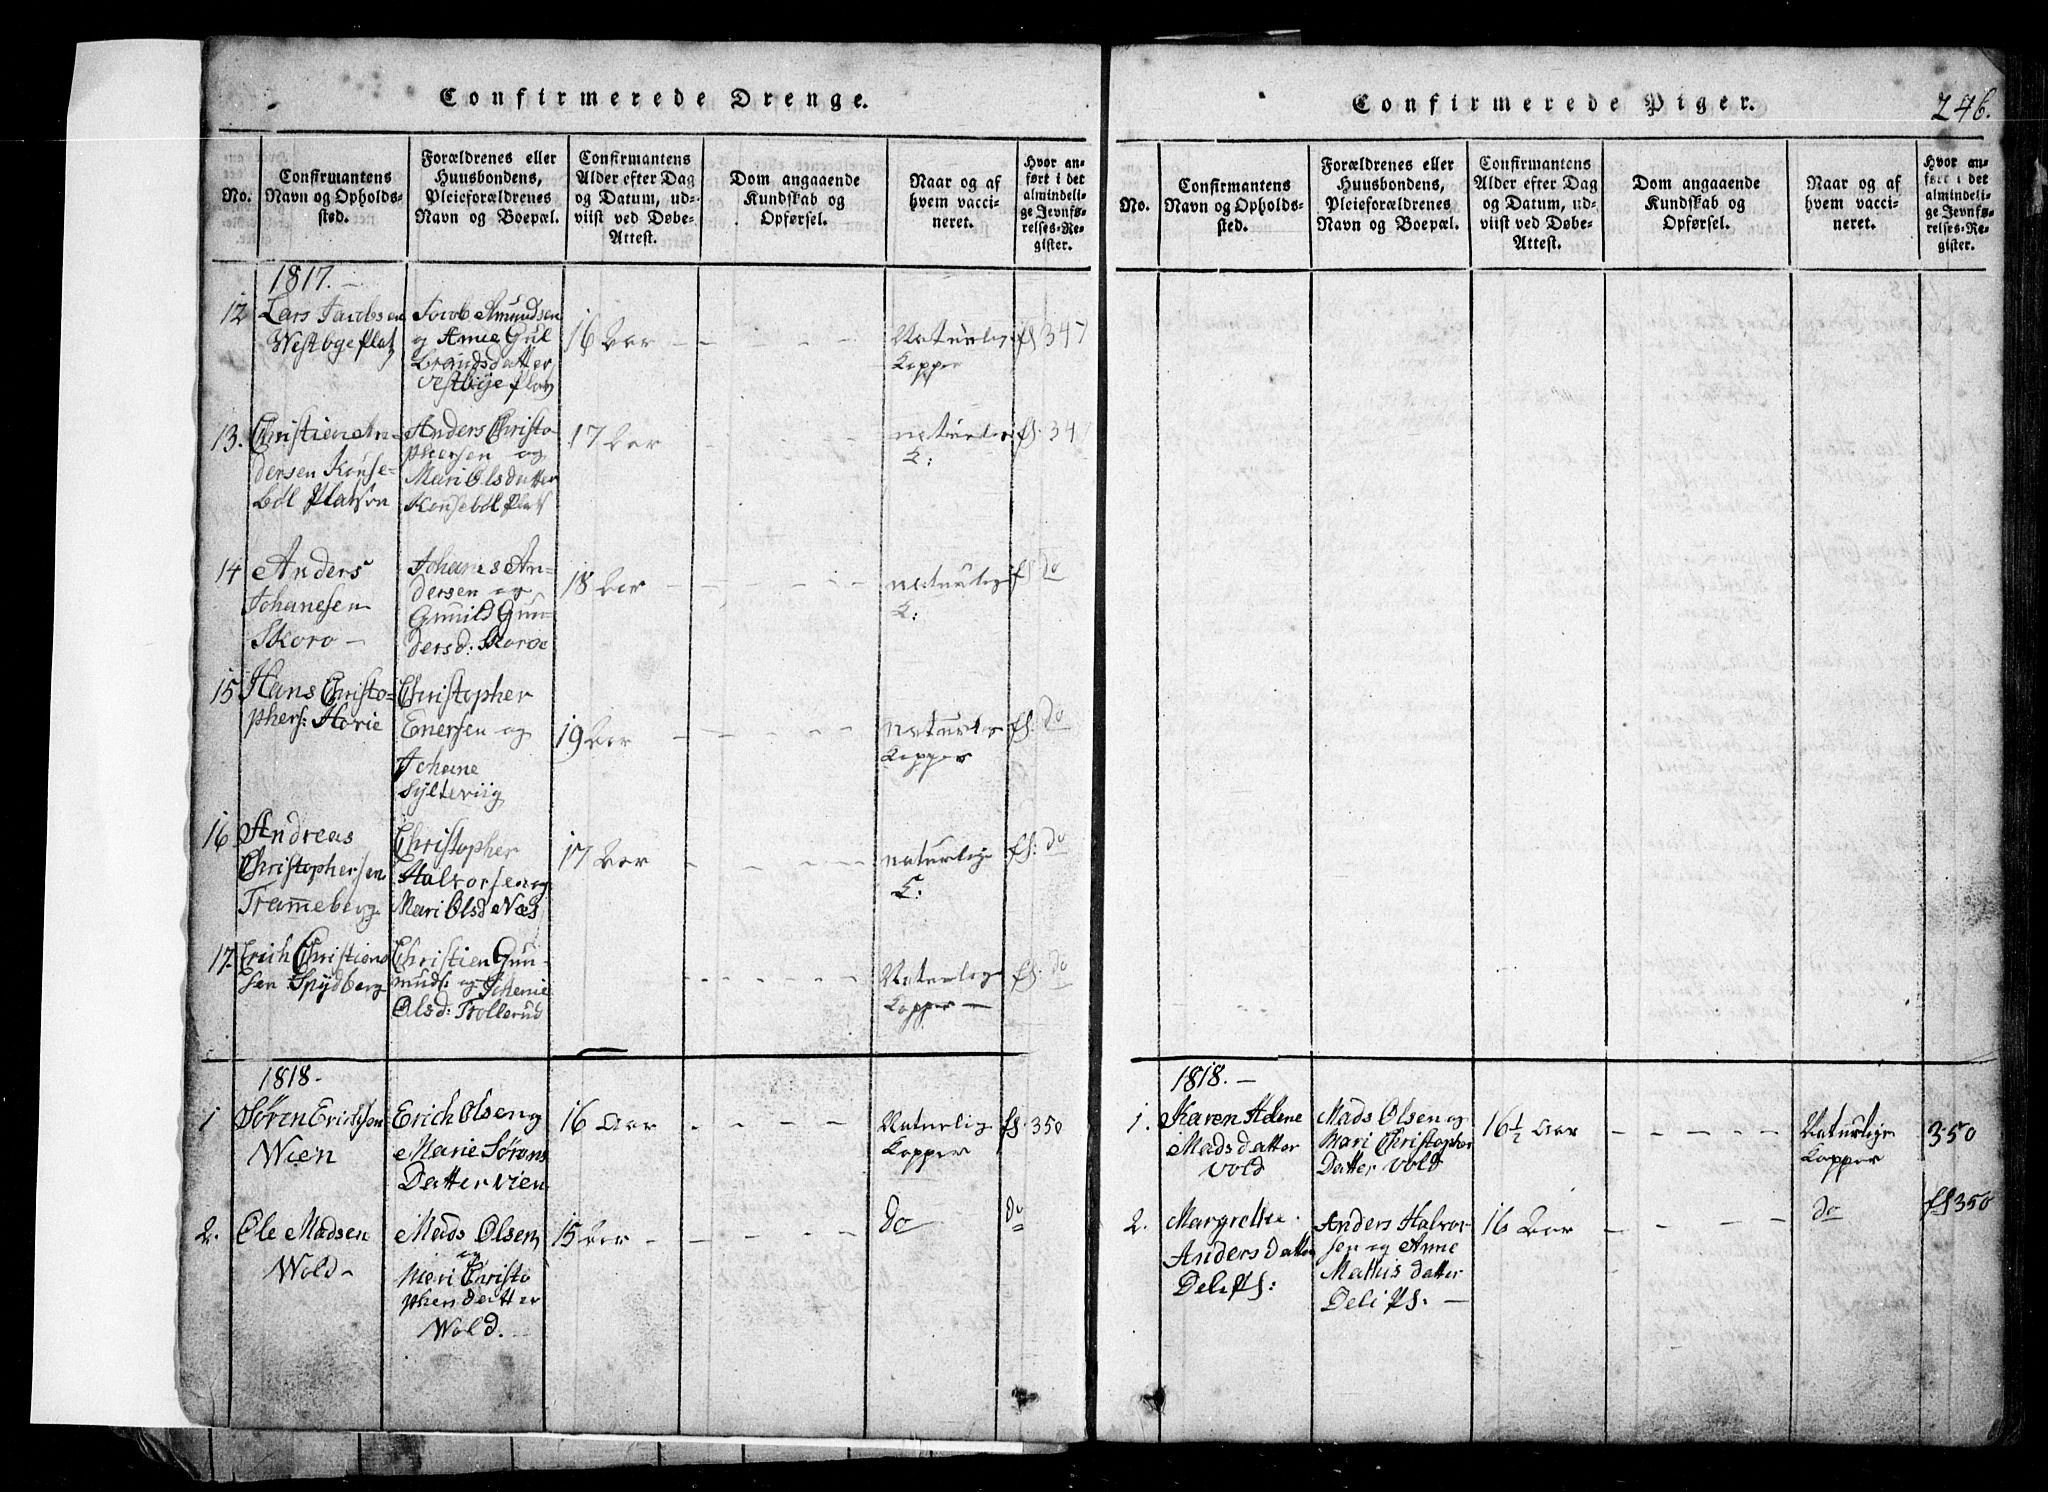 Confirmerede Drenge.
No.
Confirmantens
Navn og Opholds-
sted.
Forældrenes eller
Huusbondens,
Pleieforældrenes
Navn og Boepæl.
Confirmantens
Alder efter Dag
og Datum, ud-
viist ved Døbe-
Attest.
Dom angaaende
Kundskab og
Opførsel.
Naar og af
hvem vacci-
neret.
Hvor an-
ført i det
almindeli-
ge Jevnfø-
relses-Re-
gister.
1817. -
12
Lars Jacobsen
Westbye Plat
Jocob Amundsen
og Anne Gul
brandsdatter
Vestbye Plat
16 Aar
Naturlig
Kopper
fl 347
13.
Christien An-
dersen Kouse-
bøl Platsen
Anders Christo-
phersen og
Mari Olsdatter
Kousebøl Plats
17 Aar
naturlig
K:
fl. 347
14
Anders
Johanesen
Skoro -
Johanes An-
dersen og
Gunild Gun-
dersd: Skoroe
18 Aar
naturlige
K:
fl do
15
Hans Christo-
phers: Horie
Christopher
Enersen og
Johane
Sylteviig
19 Aar
naturlig
Kopper
fl. do
16
Andreas
Christophersen
Trammeberg
Christopher
Halvorsen og
Mari Olsd Næs
17 Aar
naturlige
K:
fl: do
17.
Erich Christien
sen Spydberg
Christien Gun-
muds: og Johenie
Olsd: Trollerud
Naturlige
Kopper -
fl. do
1818.
1
Søren Erichsen
Wien
Erich Olsen og
Marie Sørens
Datter Vien
16 Aar
Naturlig
Kopper
fl. 350
2.
Ole Madsen
Wold -
Mads Olsen
og
Mari Christo
phersdatter
Wold. -
15 Aar
do
do
Confirmerede Piger.
246.
No.
Confirmantens
Navn og Opholds-
sted.
Forældrenes eller
Huusbondens,
Pleieforældrenes
Navn og Boepæl.
Confirmantens
Alder efter Dag
og Datum, ud-
viist ved Døbe-
Attest.
Dom angaaende
Kundskab og
Opførsel.
Naar og af
hvem vacci-
neret.
Hvor an-
ført i det
almindeli-
ge Jevnfø-
relses-Re-
gister.
1818. -
1.
Karen Helene
Madsdatter
Vold
Mads Olsen og
Mari Christopher
Datter Vold
16 1/2 Aar
Naturlige
Kopper
350
2.
Margrethe
Andersdatter
Deli Ps:
Anders Halvor-
sen og Anne
Mathis datter
Deli Ps. -
16 Aar
do
fl 350